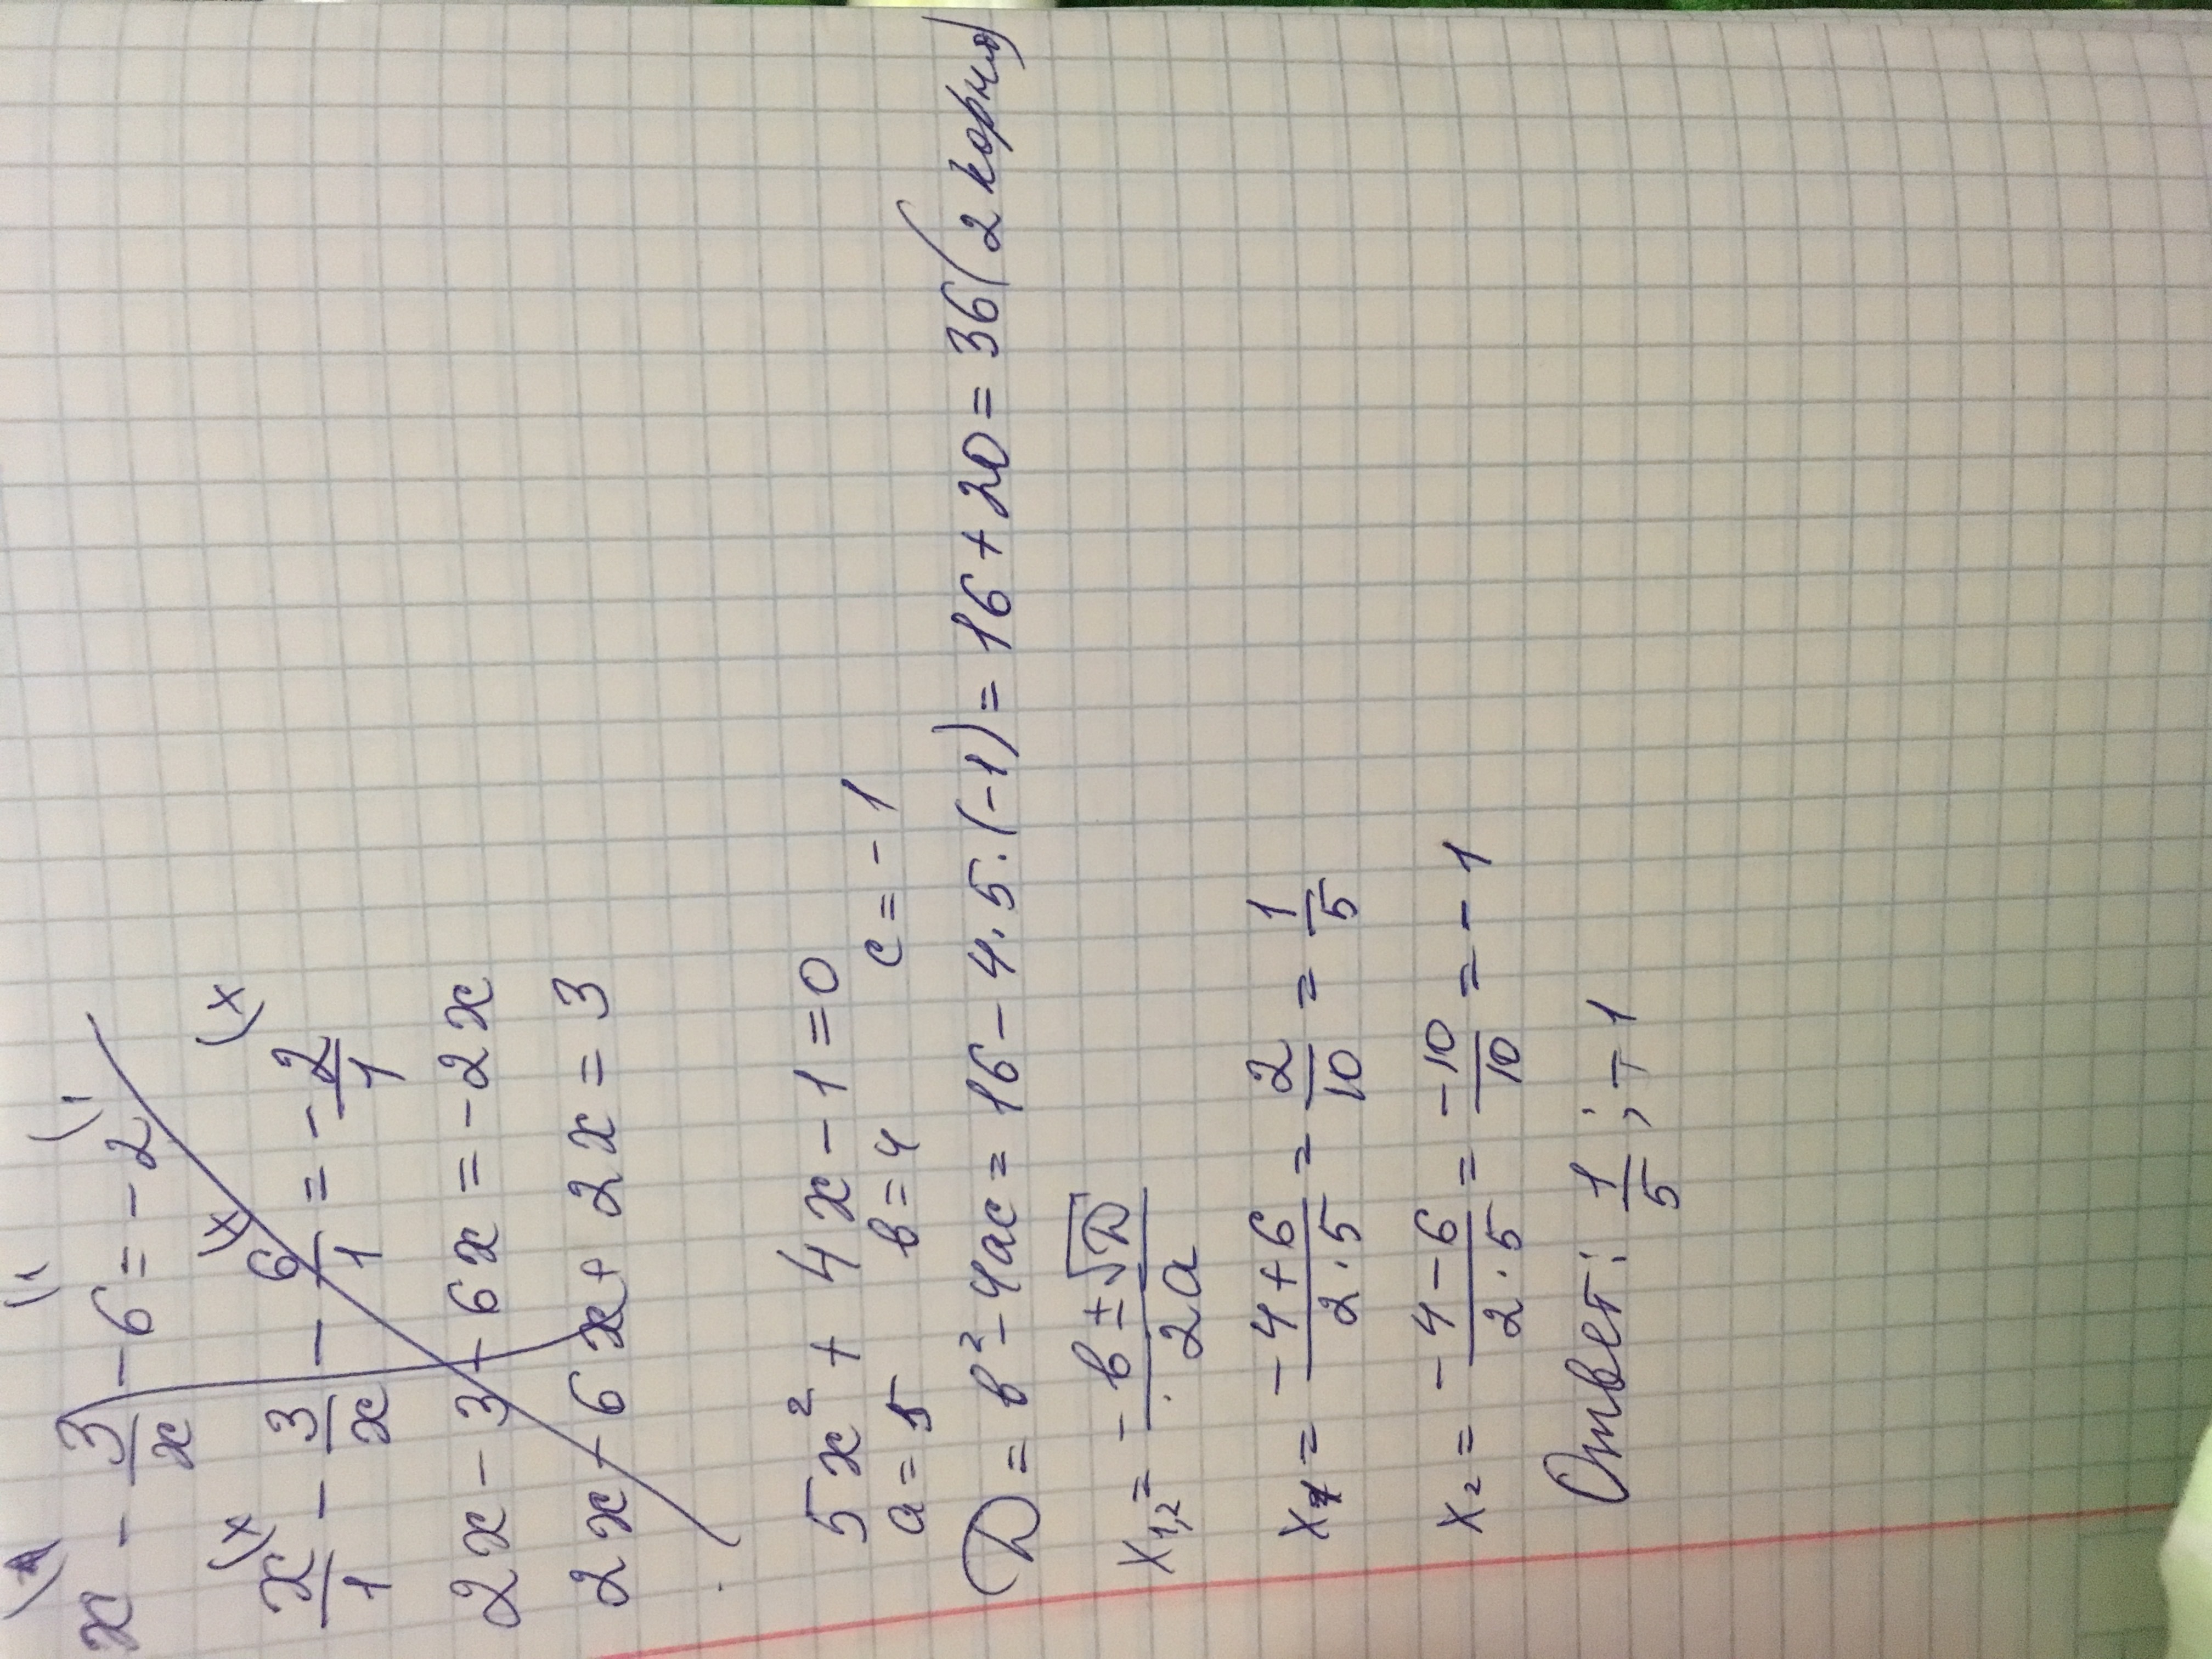 x - 3/x - 6 = -2
x/1 - 3/x - 6/1 = -2/1
2x - 3 - 6x = -2x
2x - 6x + 2x = 3
5x² + 4x - 1 = 0
a = 5 в = 4 c = -1
D = в² - 4ac = 16 - 4·5·(-1) = 16 + 20 = 36 (2 корня)
x₁,₂ = -в ± √D / 2a
x₁ = -4+6 / 2·5 = 2/10 = 1/5
x₂ = -4-6 / 2·5 = -10/10 = -1
Ответ: 1/5; -1